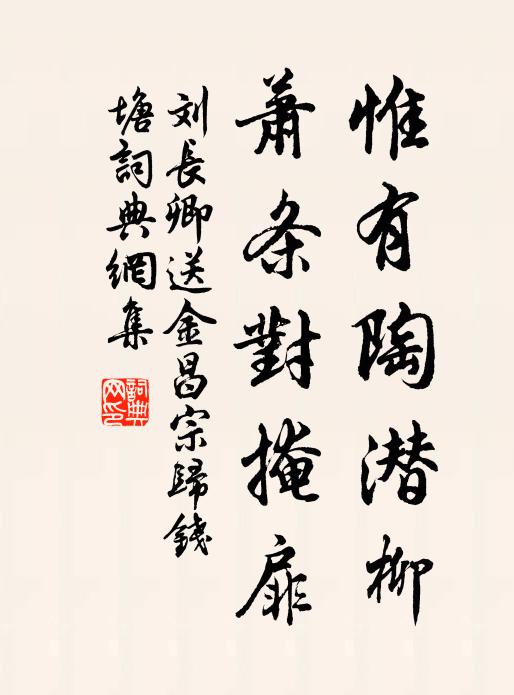 惟有陶潜柳
蕭条對掩扉
刘長卿送金昌宗歸錢
塘詞典網集
詞典
网印